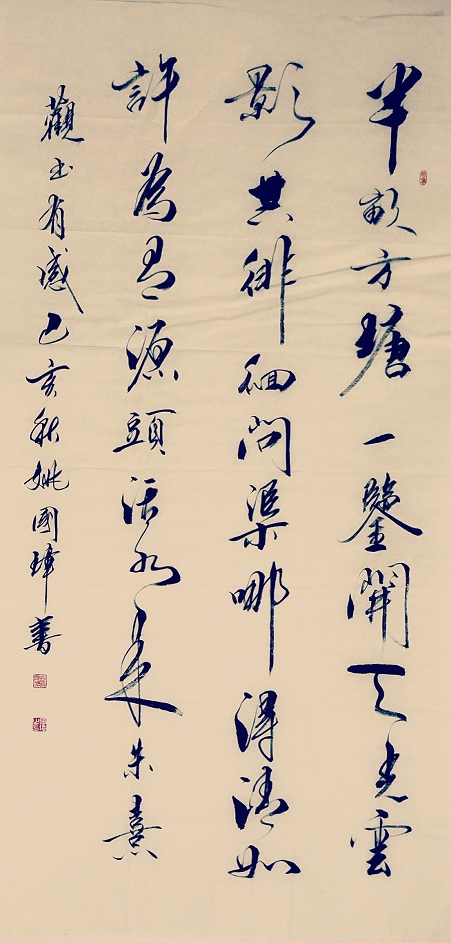 半畝方塘一鑒開天光雲
影共徘徊問渠哪得清如
許為有源頭活水來朱熹
觀書有感己亥秋姚國瑋書